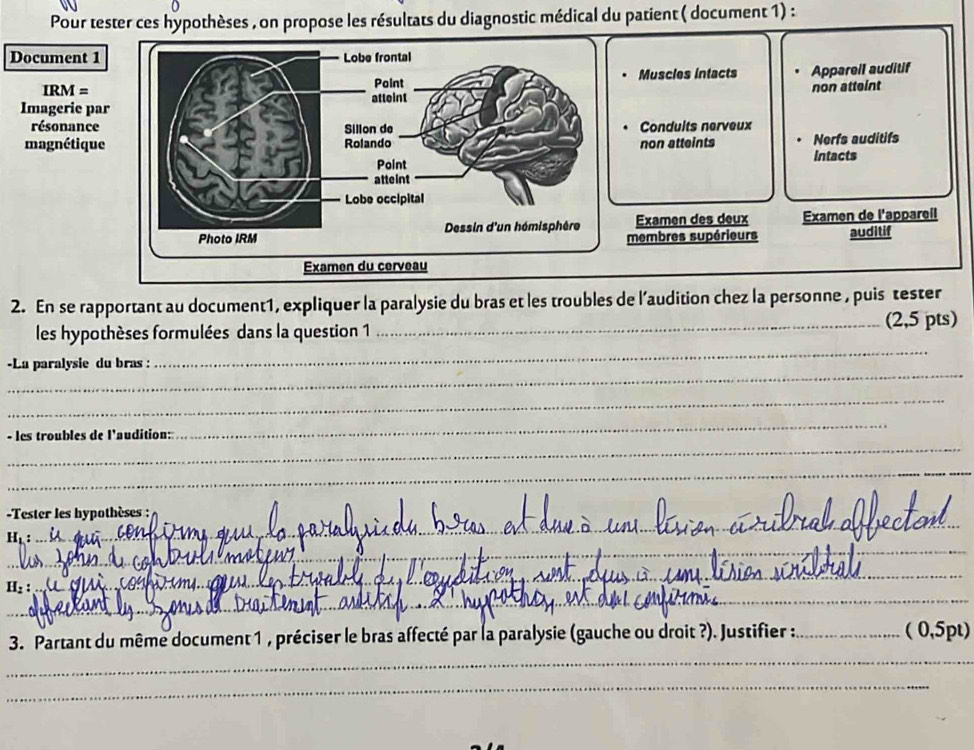 Pour tester ces hypothèses , on propose les résultats du diagnostic médical du patient ( document 1) :
Document 1
IRM =
Imagerie par
résonance
magnétique
Lobe frontal
Point
atteint
Sillon de
Rolando
Point
atteint
Lobe occipital
Photo IRM
Dessin d'un hémisphère
Examen du cerveau
• Muscles intacts
• Conduits nerveux
non atteints
Examen des deux
membres supérieurs
• Appareil auditif
non atteint
• Nerfs auditifs
intacts
Examen de l'appareil
auditif
2. En se rapportant au document1, expliquer la paralysie du bras et les troubles de l'audition chez la personne , puis tester
les hypothèses formulées dans la question 1 (2,5 pts)
-La paralysie du bras :
- les troubles de l'audition:
-Tester les hypothèses :
H₁ : ce qui confirme que la paralysie du bras est due à une lésion cérébrale affectant
les zones de contrôle moteur
H₂ : ce qui confirme que les trouble de l'audition sont dus à une lésion cérébrale
affectant les zones de traitement auditif. L'hypothèse est donc confirmée
3. Partant du même document 1 , préciser le bras affecté par la paralysie (gauche ou droit ?). Justifier : ( 0,5pt)